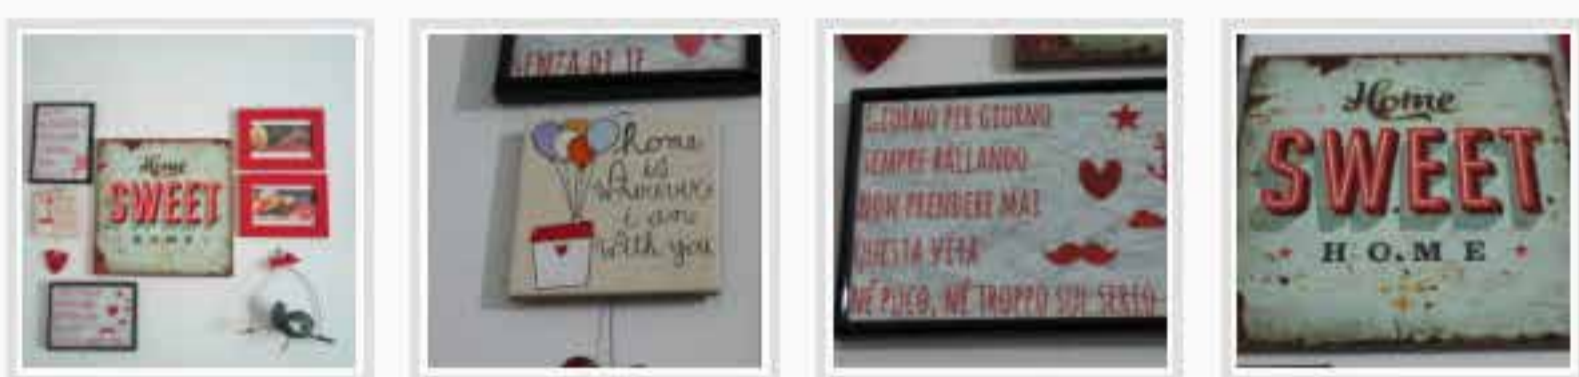 Home
SWEET
HOME
SENZA DI TE
home
is
wherever
i am
with you
GIORNO PER GIORNO
SEMPRE BALLANDO
NON PRENDERE MAI
QUESTA VITA
NÉ POCO, NÉ TROPPO SUL SERIO
Home
SWEET
HOME